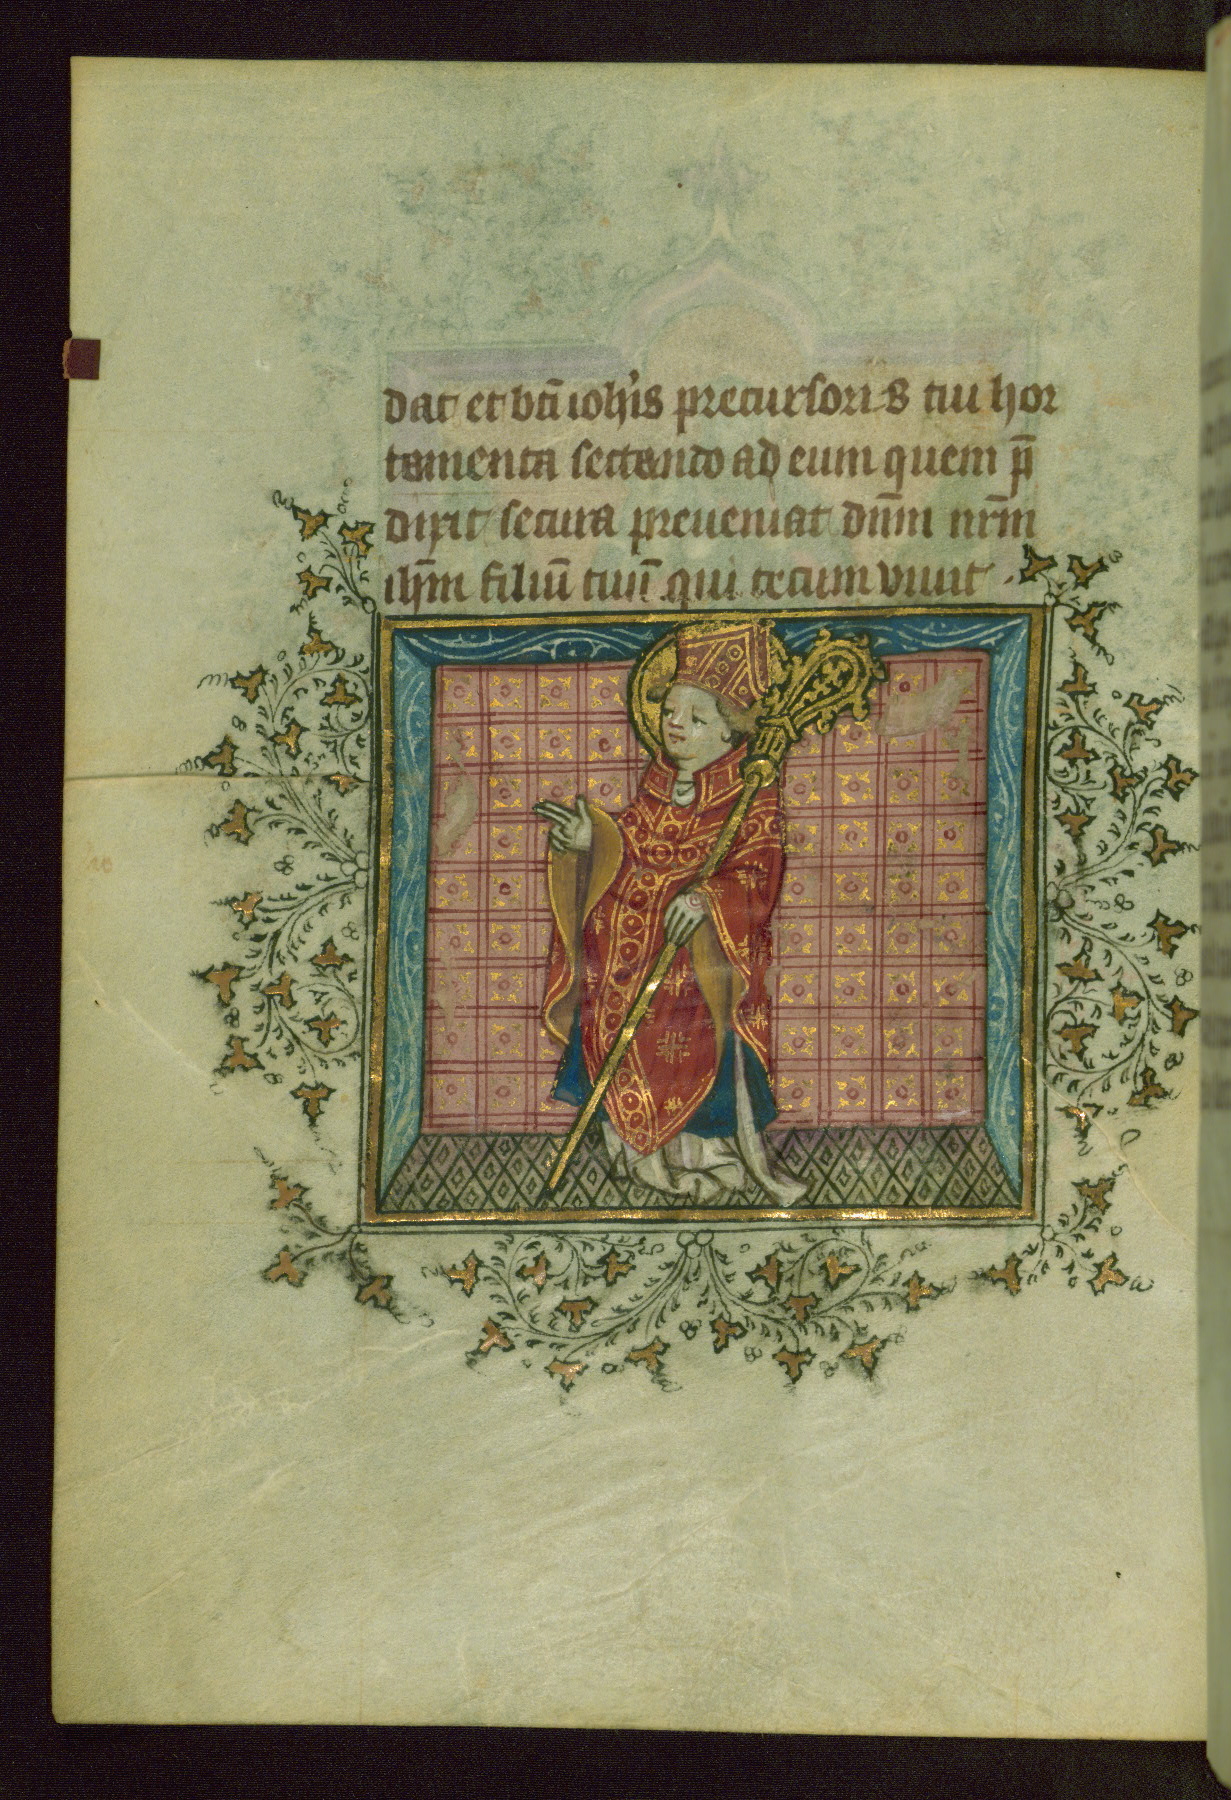 dat et bt̄i ioh̄is precursoris tui hor
tamenta sectando ad eum quem p̄
dixit secura preueniat dn̄m nr̄m
ih̄m filiū tuū qui tecum viuit .